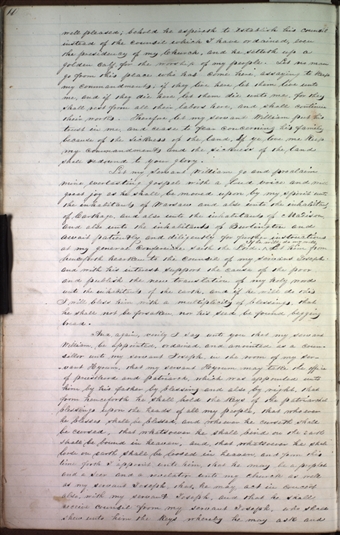 well pleased; behold he aspireth to establish his council
instead of the counsel which I have ordained, even
the presidency of my Church, and he setteth up a
golden calf for the worship of my people. Let no man
go from this place who has come here, assaying to keep
my commandments; if they live here let them live unto
me, and if they die here let them die unto me, for they
shall rest from all their labors here, and shall continue
their works. Therefore let my servant William put his
trust in me, and cease to fear concerning his family,
because of the sickness of the land. If ye love me keep
my commandments and the sickness of the land
shall redound to your glory.
Let my servant William go and proclaim
mine everlasting gospel with a loud voice and with
great joy as he shall be moved upon by my spirit unto
the inhabitants of Warsaw and also unto the inhabitants
of Carthage and also unto the inhabitants of Madison
and also unto the inhabitants of Burlington and
await patiently and diligently for further instructions
at my general conference, said the Lord.
Let him from
henceforth hearken to the counsel of my servant Joseph
and with his interest support the cause of the poor
and publish the new translation of my holy word
unto the inhabitants of the earth, and if he will do this
I will bless him with a multiplicity of blessings, that
he shall not be forsaken nor his seed be found begging
bread.
And again verily I say unto you that my servant
William, be appointed, ordained and anointed as a coun-
sellor unto my servant Joseph, in the room of my ser-
vant Hyrum, that my servant Hyrum may take the office
of priesthood and patriarch, which was appointed unto
him, by his father, by blessing and also by right, that
from henceforth he shall hold the Keys of the patriarchal
blessings upon the heads of all my people, that whoever
he blesses shall be blessed, and whoever he curseth shall
be cursed, that whatsoever he shall bind on the earth
shall be bound in heaven, and that whatsoever he shall
loose on earth shall be loosed in heaven and from this
time forth I appoint unto him, that he may be a prophet
and a seer and a revelator unto my church as well
as my servant Joseph, that he may act in concert
also with my servant Joseph, and that he shall
receive counsel from my servant Joseph, who shall
shew unto him the Keys whereby he may ask and